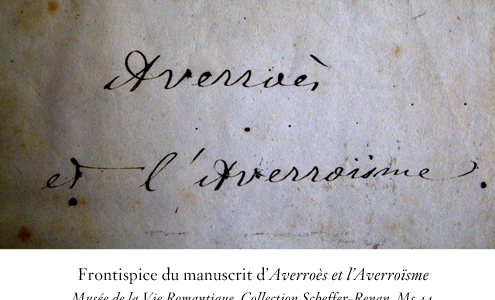 Averroès
et l'Averroïsme.
Frontispice du manuscrit d'Averroès et l'Averroïsme
Musée de la Vie Romantique, Collection Scheffer-Renan, Ms 44